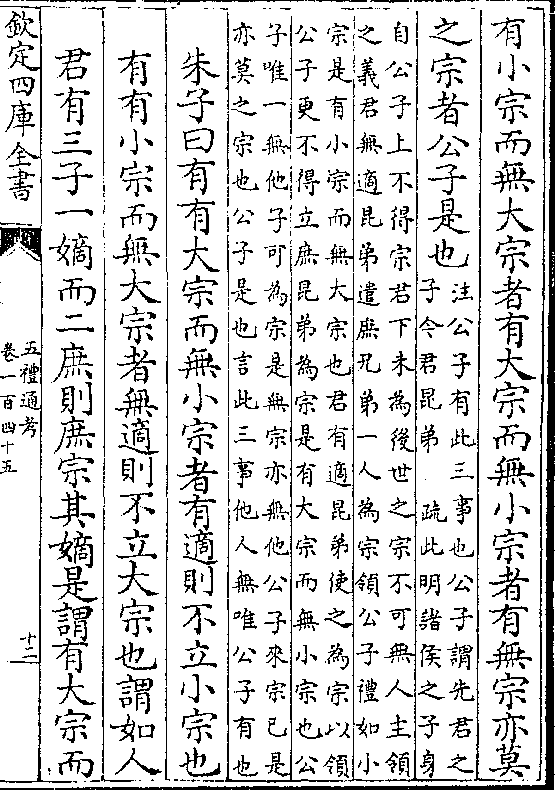 有小宗而無大宗者有大宗而無小宗者有無宗亦莫
之宗者公子是也
注公子有此三事也公子謂先君之
子今君昆弟 疏此明諸侯之子身
自公子上不得宗君下未為後世之宗不可無人主領
之義君無適昆弟遣庶兄弟一人為宗領公子禮如小
宗是有小宗而無大宗也君有適昆弟使之為宗以領
公子更不得立庶昆弟為宗是有大宗而無小宗也公
子唯一無他子可為宗是無宗亦無他公子來宗已是
亦莫之宗也公子是也言此三事他人無唯公子有也
朱子曰有有大宗而無小宗者有適則不立小宗也
有有小宗而無大宗者無適則不立大宗也謂如人
君有三子一嫡而二庶則庶宗其嫡是謂有大宗而
欽定四庫全書
五禮通考
卷一百四十五
十二